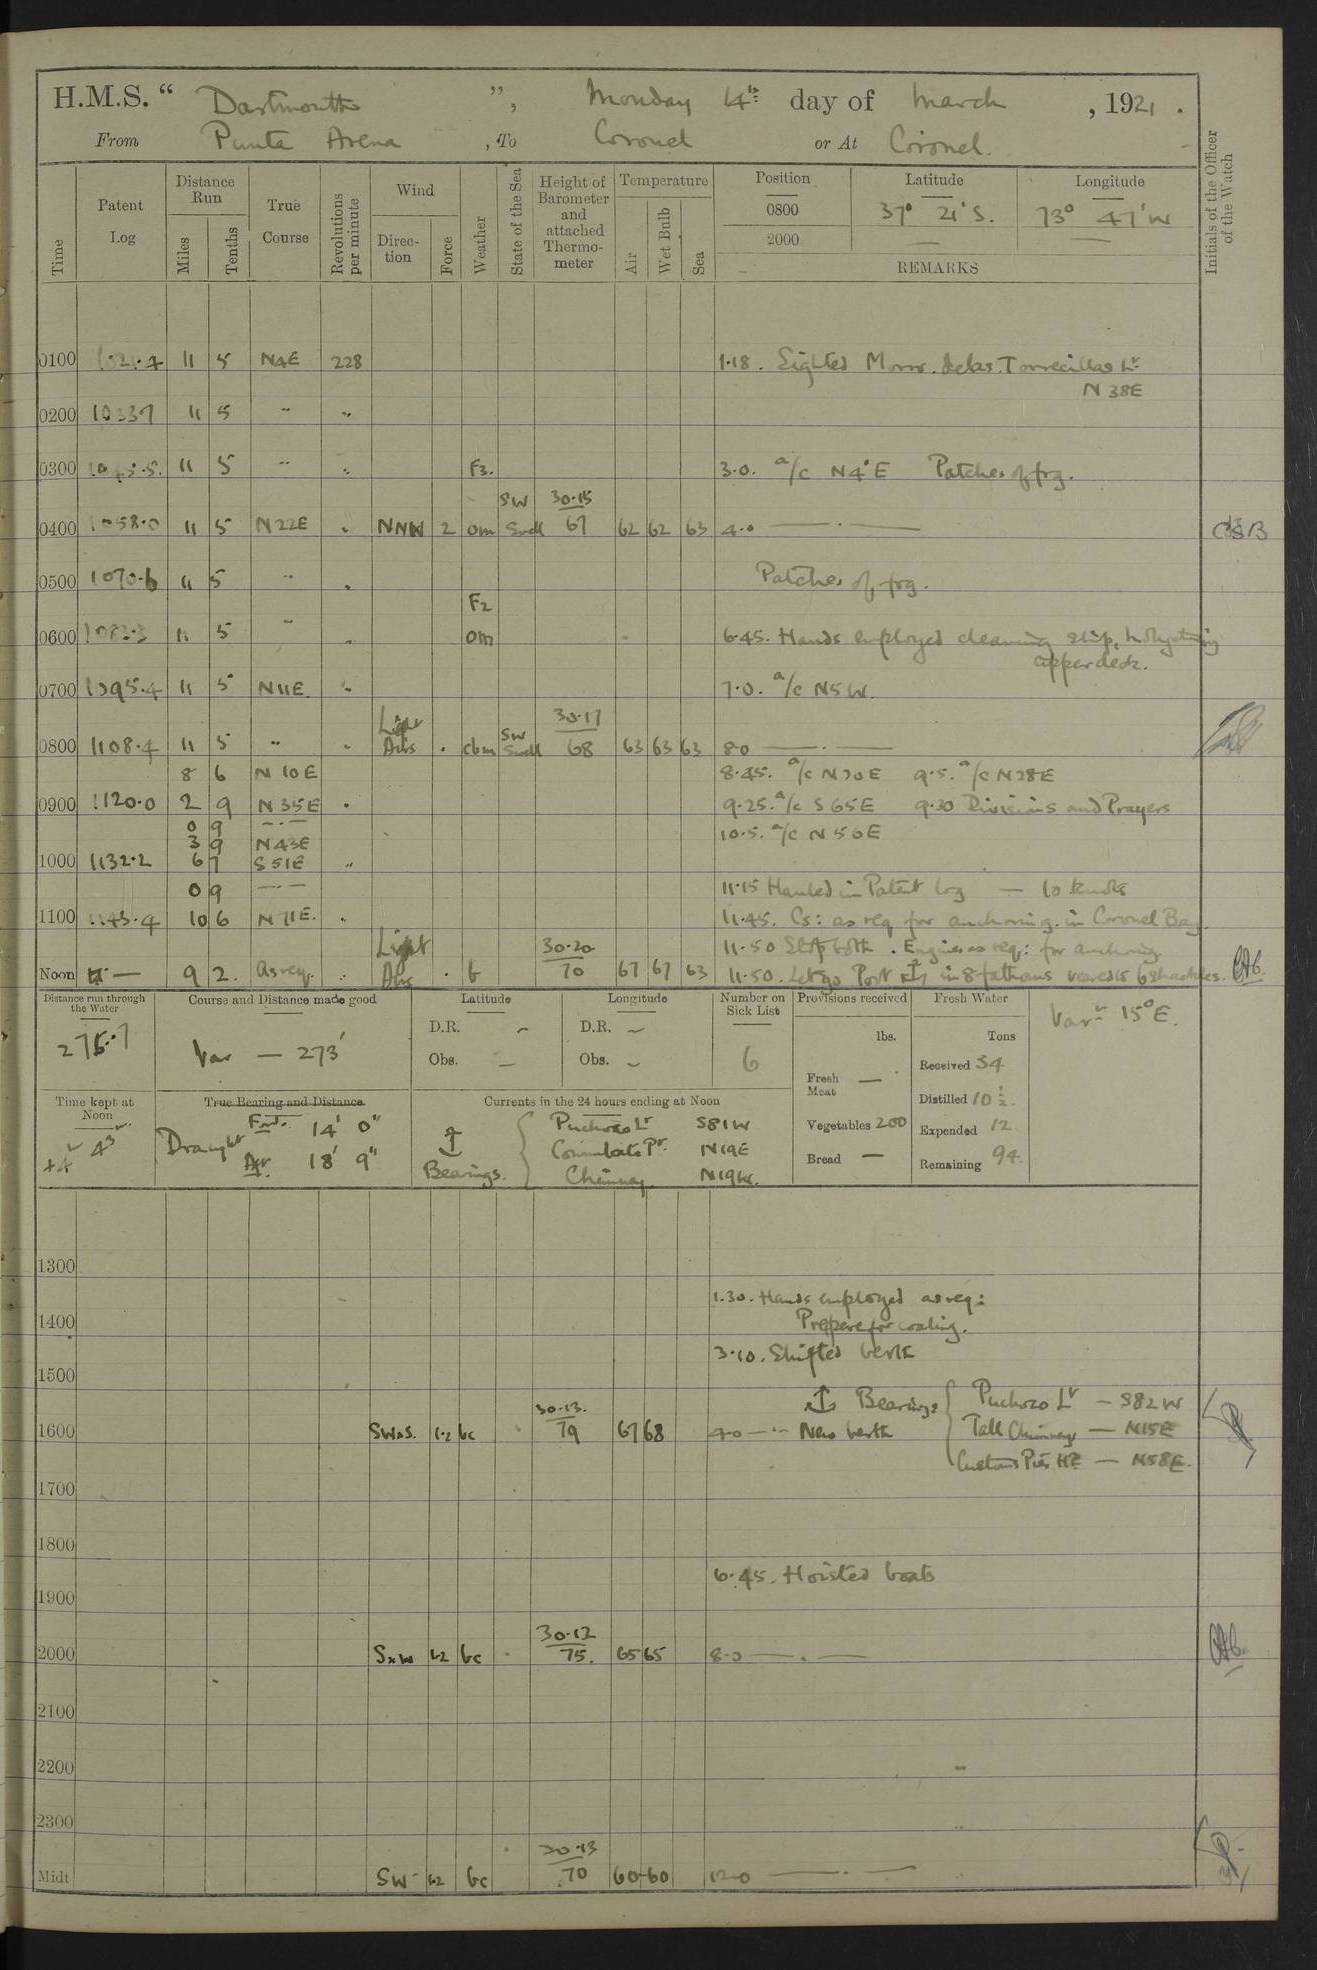 H.M.S. “ Dartmouth ”, Monday 14th day of March , 1921 .
From Punta Arena , To Coronel or At Coronel.
Initials of the Officer of the Watch
Time
Patent Log
Distance Run
Miles
Tenths
True Course
Revolutions per minute
Wind
Direction
Force
Weather
State of the Sea
Height of Barometer and attached Thermometer
Temperature
Air
Wet Bulb
Sea
Position Latitude Longitude
0800 37° 21' S. 73° 47' W
2000 — —
REMARKS
0100 11 5 N4E 228 1·18. Sighted Torrecillas Lt
N 38E
0200 10337 11 5 " "
0300 11 5 " " F3. 3·0. a/c N4°E Patches of fog.
SW 30·15
0400 1058·0 11 5 N22E " NNW 2 om Swell 67 62 62 63 4·0 — · —
0500 1070·6 11 5 " " Patches of fog.
F2
0600 1083·3 11 5 " " om 6·45. Hands employed cleaning ship, holystoning
upper deck.
0700 1095·4 11 5 N11E " 7·0. a/c N5W.
Light SW 30·17
0800 1108·4 11 5 " " Airs · cbm Swell 68 63 63 63 8·0 — · —
8 6 N 10 E 8·45. a/c N20E 9·5. a/c N28E
0900 1120·0 2 9 N35E " 9·25. a/c S65E 9·30 Divisions and Prayers
0 9 — · — 10·5. a/c N56E
3 9 N43E
1000 1132·2 6 7 S51E "
0 9 — · — 11·15 Hauled in Patent log — 10 knots
1100 1145·4 10 6 N71E. " 11·45. Cs: as req for anchoring in Coronel Bay.
Light 30·20 11·50 Stop both. Engines as req: for anchoring
Noon — 9 2. As req. " Airs · b 70 67 67 63 11·50. Let go Port ⚓ in 8 fathoms veered 6 shackles.
Distance run through the Water
275·7
Course and Distance made good
Var — 273'
Latitude
D.R. —
Obs. —
Longitude
D.R. —
Obs. —
Number on Sick List
6
Provisions received
lbs.
Fresh Meat —
Vegetables 200
Bread —
Fresh Water
Tons
Received 34
Distilled 10½
Expended 12
Remaining 94
Varn 15°E.
Time kept at Noon
True Bearing and Distance
Draught Ford. 14' 0"
Aft. 18' 9"
Currents in the 24 hours ending at Noon
⚓ Bearings. Puchoco Lt S81W
N19E
Chimney N19W.
1300
1.30. Hands employed as req:
1400 Prepare for coaling.
3·10. Shifted berth
1500
30·13. ⚓ Bearings Puchoco Lt — S82W
1600 SWxS. 1·2 bc 79 67 68 4·0 — New berth Tall Chimney — N15E
Customs Pier Hd — N58E.
1700
1800
6·45. Hoisted boats
1900
30·12
2000 SxW 1·2 bc 75. 65 65 8·0 — · —
2100
2200
2300
30·13
Midt SW 1·2 bc 70 60 60 12·0 — · —